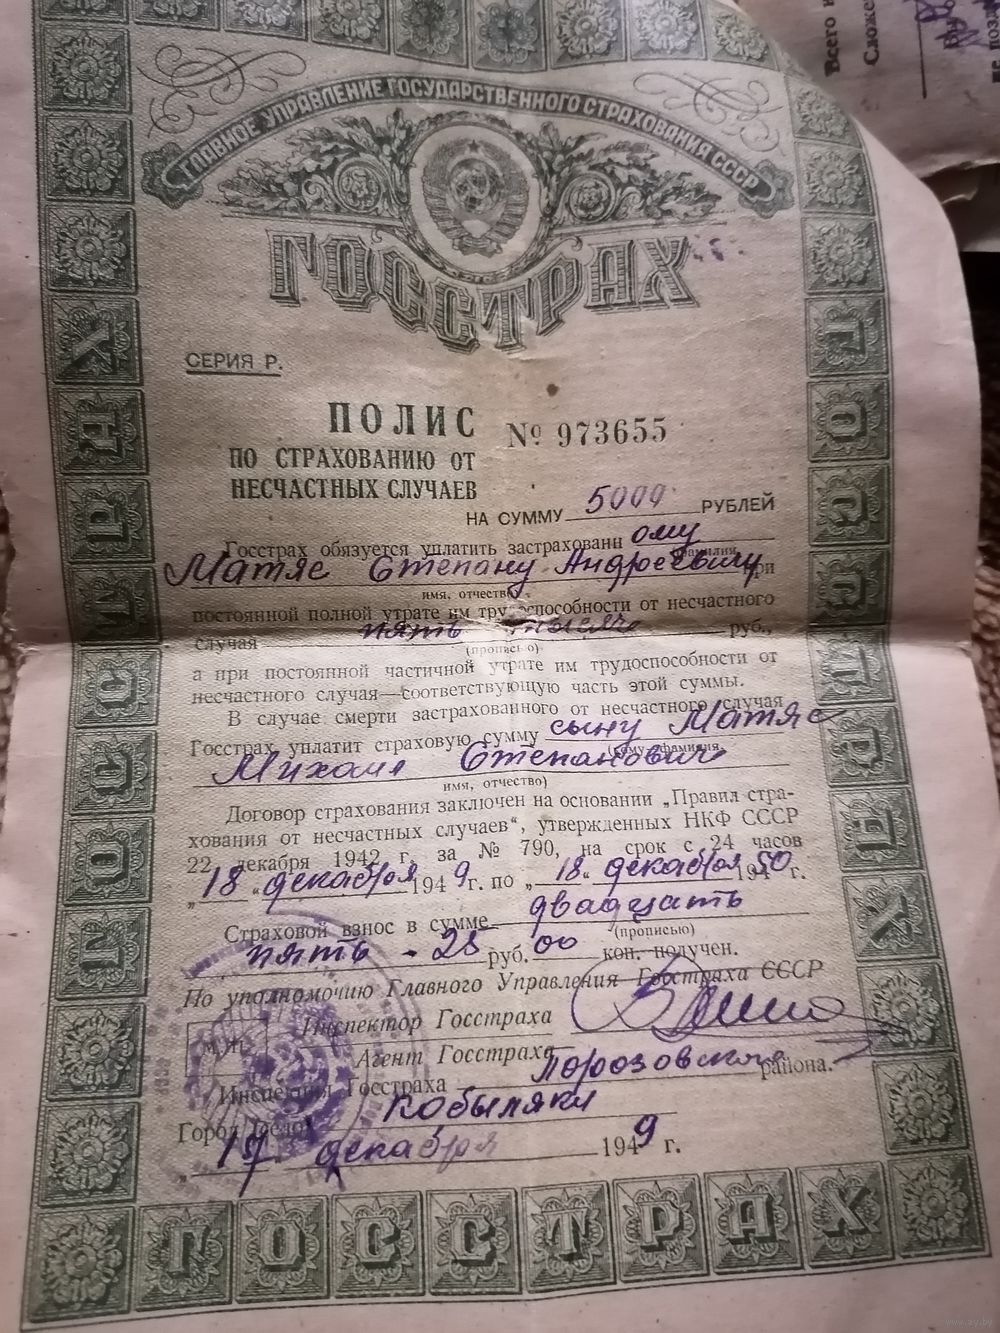 ГЛАВНОЕ УПРАВЛЕНИЕ ГОСУДАРСТВЕННОГО СТРАХОВАНИЯ СССР
ГОССТРАХ
СЕРИЯ Р.
ПОЛИС № 973655
ПО СТРАХОВАНИЮ ОТ
НЕСЧАСТНЫХ СЛУЧАЕВ
НА СУММУ 5000 РУБЛЕЙ
Госстрах обязуется уплатить застрахованн ому
фамилия,
Матяс Степану Андреевичу при
имя, отчество)
постоянной полной утрате им трудоспособности от несчастного
случая пять тысяч руб.,
(прописью)
а при постоянной частичной утрате им трудоспособности от
несчастного случая—соответствующую часть этой суммы.
В случае смерти застрахованного от несчастного случая
Госстрах уплатит страховую сумму сыну Матяс
(кому—фамилия,
Степанович
имя, отчество)
Договор страхования заключен на основании „Правил стра-
хования от несчастных случаев“, утвержденных НКФ СССР
22 декабря 1942 г. за № 790, на срок с 24 часов
„18“ декабря 1949 г. по „18“ декабря 1950 г.
Страховой взнос в сумме двадцать
(прописью)
пять - 25 руб. 00 коп. получен.
По уполномочию Главного Управления Госстраха СССР
Инспектор Госстраха
Агент Госстраха
Инспекция Госстраха Порозовского района.
Город (село) Кобыляки
„17 декабря 1949 г.
М. П.
ГОССТРАХ
ГОССТРАХ
ГОССТРАХ
Всего
www.ay.by